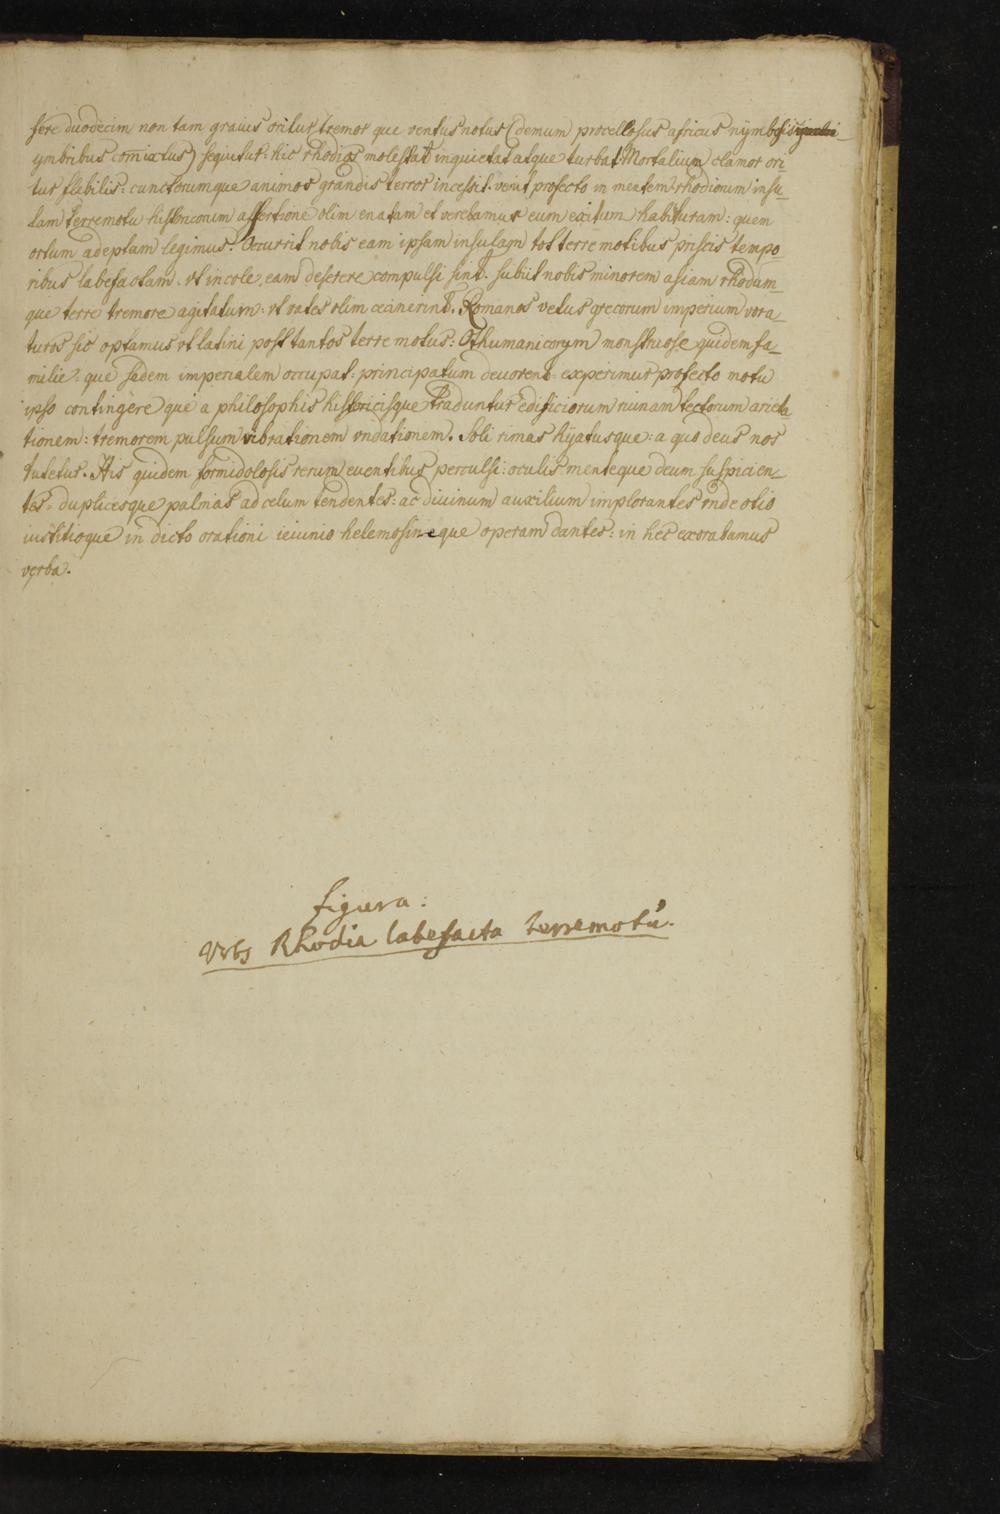 fere duodecim non tam grauis oritur tremor que ventus notus (demum procellosus africus nymbosis
ymbribus comixtus) sequitur: hic rhodios molestat inquietat atque turbat. Mortalium clamor ori_
tur flebilis: cunctorumque animos grandis terror incessit. venit profecto in mentem rhodiorum insu_
lam terremotu historiconum assertione olim enatam et verebamur eum exitum habituram: quem
ortum adeptam legimus. Occurrit nobis eam ipsam insulam tot terremotibus priscis tempo_
ribus labefactam. vt incole, eam deserere compulsi sint. subiit nobis minorem asiam rhodum_
que terre tremore agitatum: vt vates olim cecinerint. Romanos vetus grecorum imperium vora_
turos sic optamus vt latini post tantos terre motus: Othumanicorum monstruose quidem fa_
milie: que sedem imperialem occupat: principatum deuorent experimur profecto motu
ipso contingere que a philosophis historicisque traduntur edificiorum ruinam tectorum arieta
tionem: tremorem pulsum vibrationem vndationem. Soli rimas hyatusque: a quo deus nos
tutetur. His quidem formidolosis rerum euentibus perculsi: oculis menteque deum suspicien_
tes: duplicesque palmas ad celum tendentes: ac diuinum auxilium implorantes vnde otio
iustitioque in dicto orationi ieiunio helemosineque operam dantes: in hec exorabamus
verba.
figura:
Vrbs Rhodia labefacta terremotu.